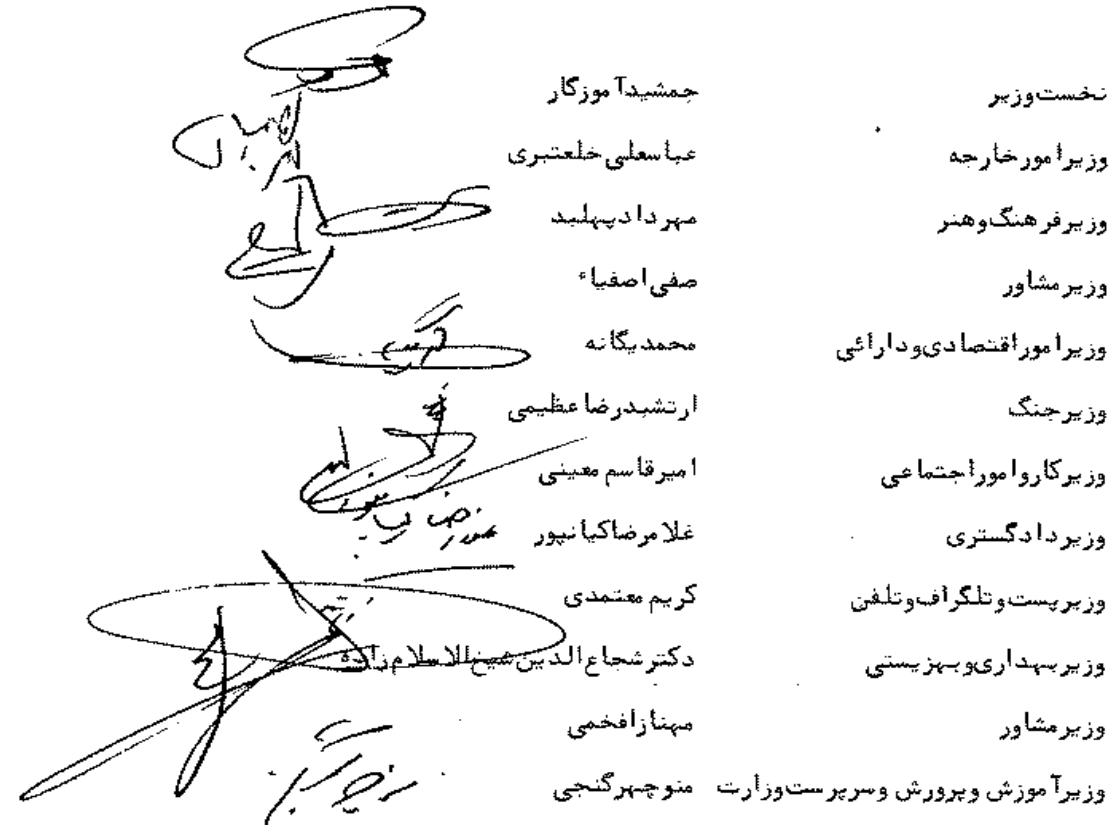 نخست‌وزیر جمشید آموزگار
وزیر امور خارجه عباسعلی خلعتبری
وزیر فرهنگ و هنر مهرداد پهلبد
وزیر مشاور صفی اصفیاء
وزیر امور اقتصادی و دارائی محمد یگانه
وزیر جنگ ارتشبد رضا عظیمی
وزیر کار و امور اجتماعی امیر قاسم معینی
وزیر دادگستری غلامرضا کیانپور
وزیر پست و تلگراف و تلفن کریم معتمدی
وزیر بهداری و بهزیستی دکتر شجاع الدین شیخ الاسلام زاده
وزیر مشاور مهناز افخمی
وزیر آموزش و پرورش و سرپرست وزارت منوچهر گنجی